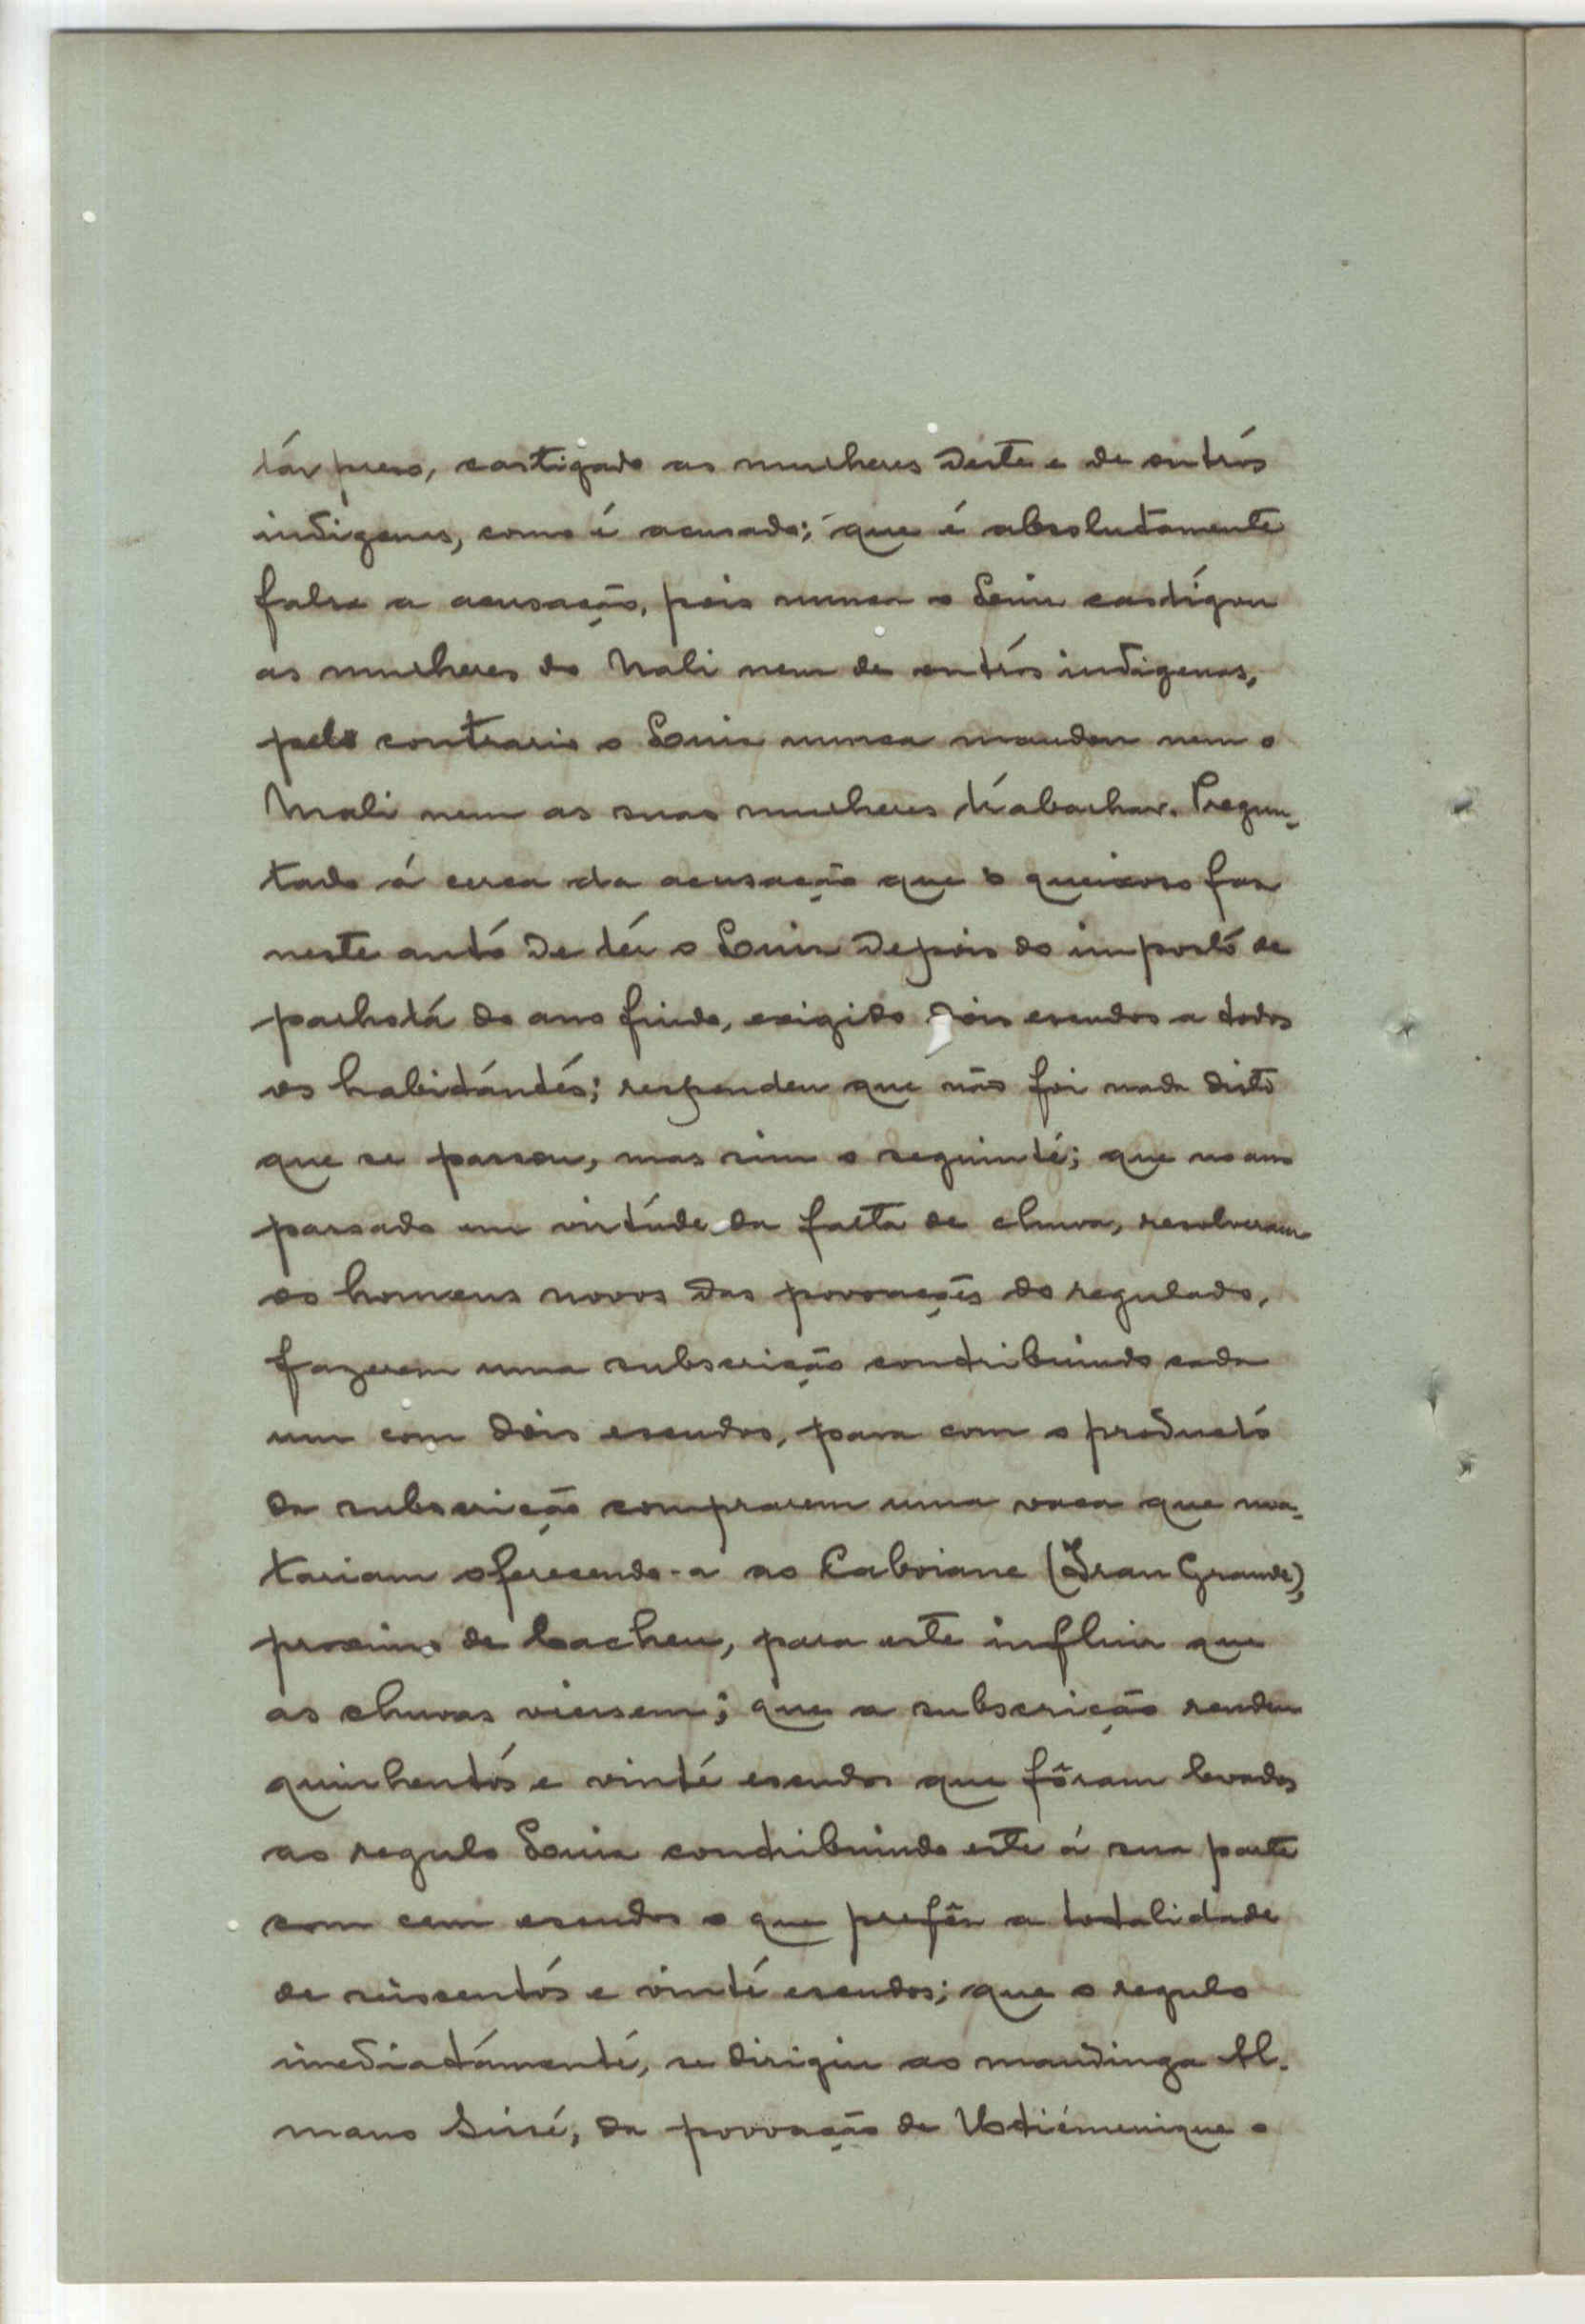 tár preso, castigado as mulheres deste e de outrós
indigenas, como é acusado; que é absolutamente
falsa a acusação, pois nunca o Luiz castigou
as mulheres do Mali nem de outrós indigenas,
pelo contrario o Luiz nunca mandou nem o
Mali nem as suas mulheres trabalhar. Pregun-
tado á cerca da acusação que o queixoso faz
neste autó de tér o Luiz depois do impostó de
palhotá do ano findo, exigido dois escudos a todos
os habitántés; respondeu que não foi nada disto
que se passou, mas sim o seguinté; que no ano
passado em virtúde da falta de chuva, resolveram
os homens novos das povoações do regulado,
fazerem uma subscrição contribuindo cada
um com dois escudos, para com o productó
da subscrição comprarem uma vaca que ma-
tariam oferecendo-a ao Caboiane (Iran Grande),
proximo de Cacheu, para este influir que
as chuvas viessem; que a subscrição rendeu
quinhentós e vinté escudos que fôram levados
ao regulo Luiz contribuindo este á sua parte
com cem escudos o que prefêz a totalidade
de seiscentós e vinté escudos; que o regulo
imediatámenté, se dirigiu ao mandinga Al-
mano Sissé, da povoação de